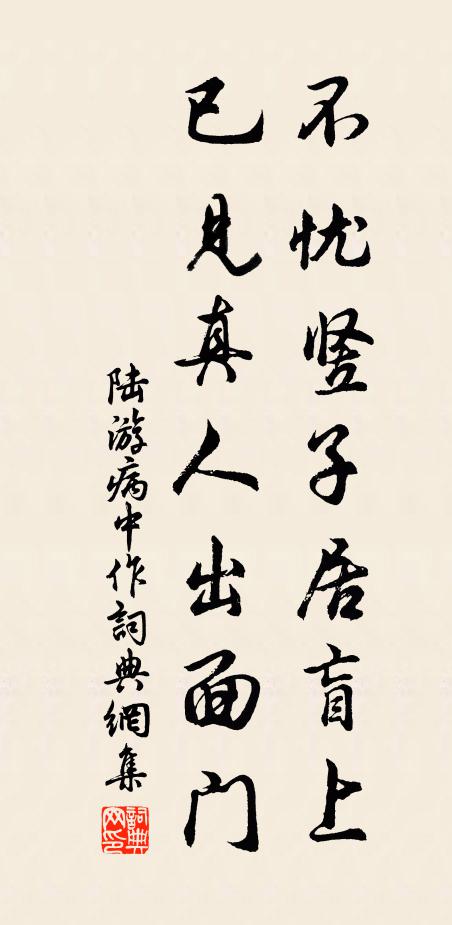 不忧竖子居肓上
已见真人出面门
陆游病中作詞典網集
詞典網印